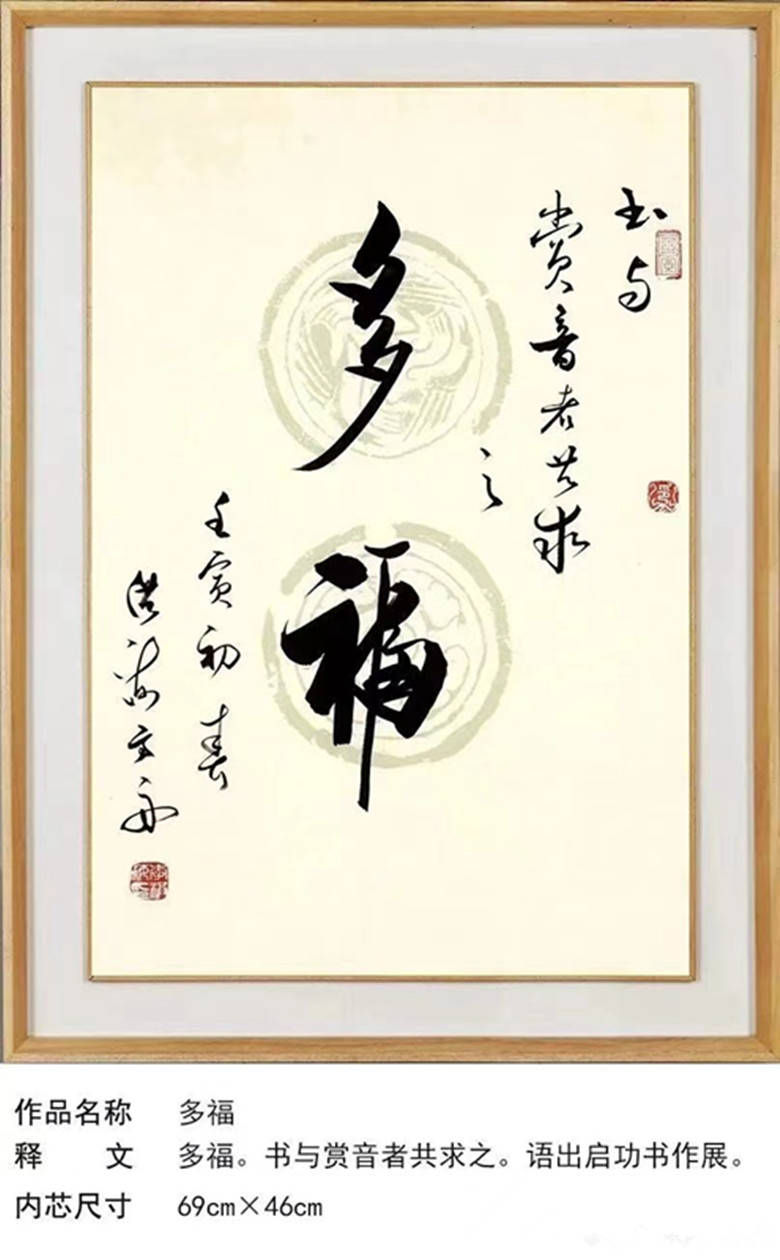 书与
赏音者共求
之
多福
壬寅初春
作品名称 多福
释 文 多福。书与赏音者共求之。语出启功书作展。
内芯尺寸 69cm×46cm